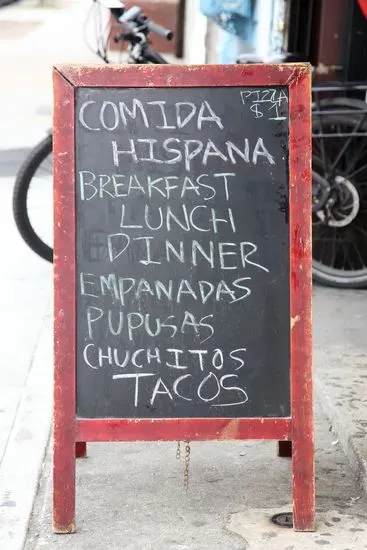 PIZZA
$1
COMIDA
HISPANA
BREAKFAST
LUNCH
DINNER
EMPANADAS
PUPUSAS
CHUCHITOS
TACOS